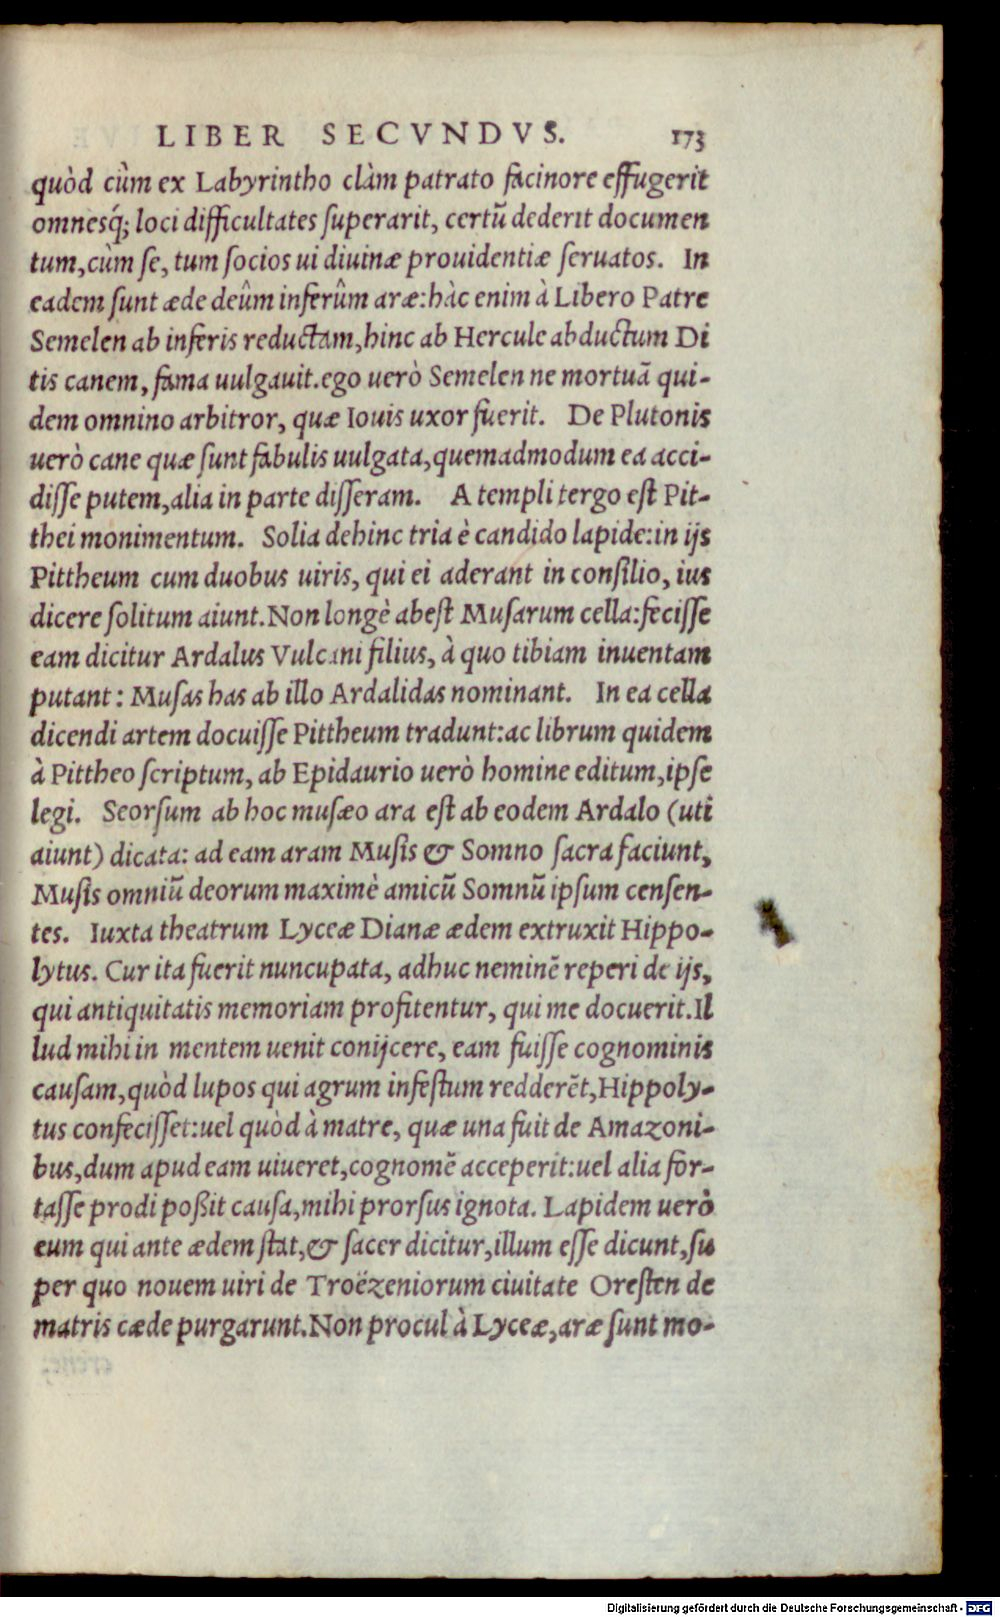 LIBER SECVNDVS. 173
quòd cùm ex Labyrintho clàm patrato facinore effugerit
omnesq́; loci difficultates superarit, certũ dederit documen
tum, cùm se, tum socios ui diuinæ prouidentiæ seruatos. In
eadem sunt æde deûm inferûm aræ: hàc enim à Libero Patre
Semelen ab inferis reductam, hinc ab Hercule abductum Di
tis canem, fama uulgauit. ego uerò Semelen ne mortuã qui-
dem omnino arbitror, quæ Iouis uxor fuerit. De Plutonis
uerò cane quæ sunt fabulis uulgata, quemadmodum ea acci-
disse putem, alia in parte disseram. A templi tergo est Pit-
thei monimentum. Solia dehinc tria è candido lapide: in ijs
Pittheum cum duobus uiris, qui ei aderant in consilio, ius
dicere solitum aiunt. Non longè abest Musarum cella: fecisse
eam dicitur Ardalus Vulcani filius, à quo tibiam inuentam
putant: Musas has ab illo Ardalidas nominant. In ea cella
dicendi artem docuisse Pittheum tradunt: ac librum quidem
à Pittheo scriptum, ab Epidaurio uerò homine editum, ipse
legi. Seorsum ab hoc musæo ara est ab eodem Ardalo (uti
aiunt) dicata: ad eam aram Musis & Somno sacra faciunt,
Musis omniũ deorum maximè amicũ Somnũ ipsum censen-
tes. Iuxta theatrum Lyceæ Dianæ ædem extruxit Hippo-
lytus. Cur ita fuerit nuncupata, adhuc neminẽ reperi de ijs,
qui antiquitatis memoriam profitentur, qui me docuerit. Il
lud mihi in mentem uenit conijcere, eam fuisse cognominis
causam, quòd lupos qui agrum infestum redderẽt, Hippoly-
tus confecisset: uel quòd à matre, quæ una fuit de Amazoni-
bus, dum apud eam uiueret, cognomẽ acceperit: uel alia for-
tasse prodi poßit causa, mihi prorsus ignota. Lapidem uerò
eum qui ante ædem stat, & sacer dicitur, illum esse dicunt, su
per quo nouem uiri de Troëzeniorum ciuitate Oresten de
matris cæde purgarunt. Non procul à Lyceæ, aræ sunt mo-
Digitalisierung gefördert durch die Deutsche Forschungsgemeinschaft - DFG